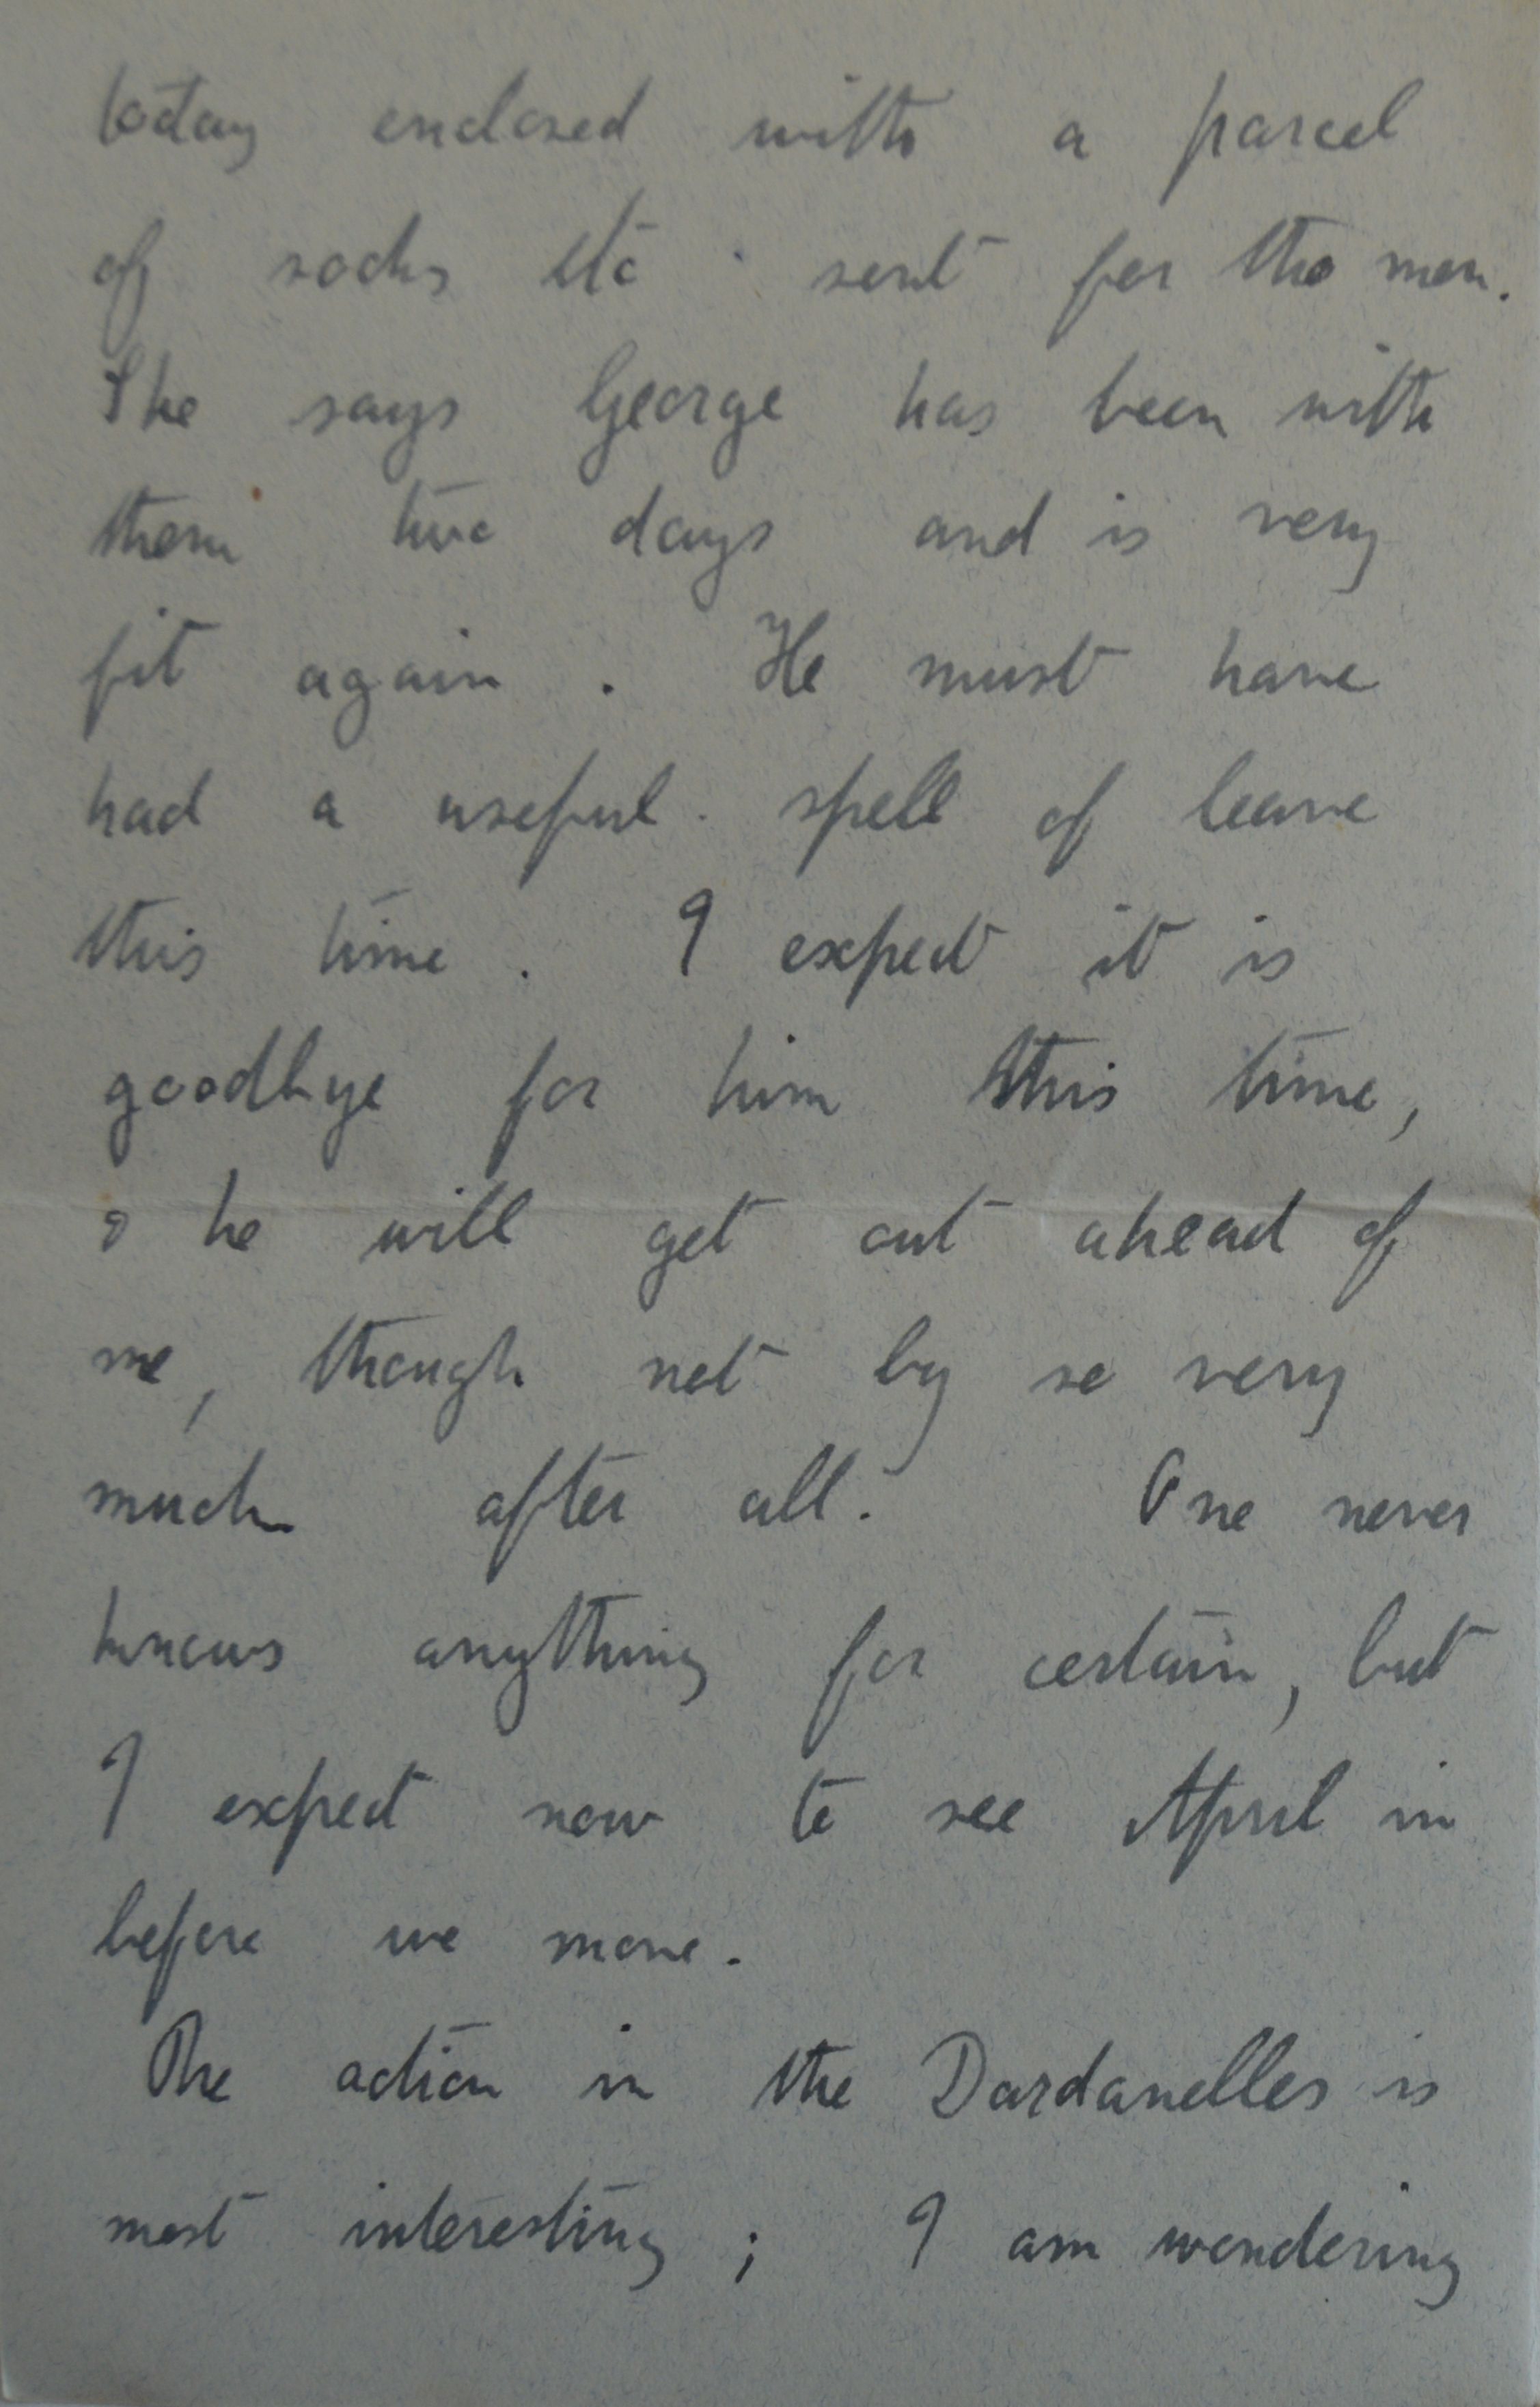 today enclosed with a parcel
of socks etc sent for the men.
She says George has been with
them two days and is very
fit again. He must have
had a useful spell of leave
this time. I expect it is
goodbye for him this time,
& he will get out ahead of
me, though not by so very
much after all. One never
knows anything for certain, but
I expect now to see April in
before we move.
The action in the Dardanelles is
most interesting; I am wondering